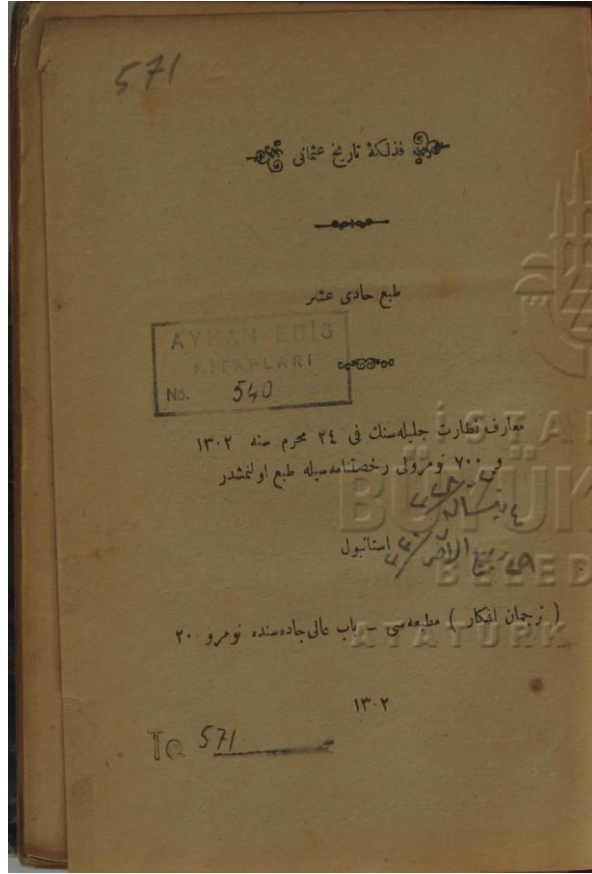 571
فذلكۀ تاريخ عثمانى
طبع حادى عشر
AYHAN EDİS
KİTAPLARI
No. 540
معارف نظارت جليله‌سنك فى ٢٤ محرم سنه ١٣٠٢
و ٧٠٠ نومرولى رخصتنامه‌سيله طبع اولنمشدر
ربيع الآخر
استانبول
( ترجمان افكار ) مطبعه‌سى – باب عالى جاده‌سنده نومرو ٢٠
١٣٠٢
571
İSTAN
BÜYÜK
BELED
ATATÜRK